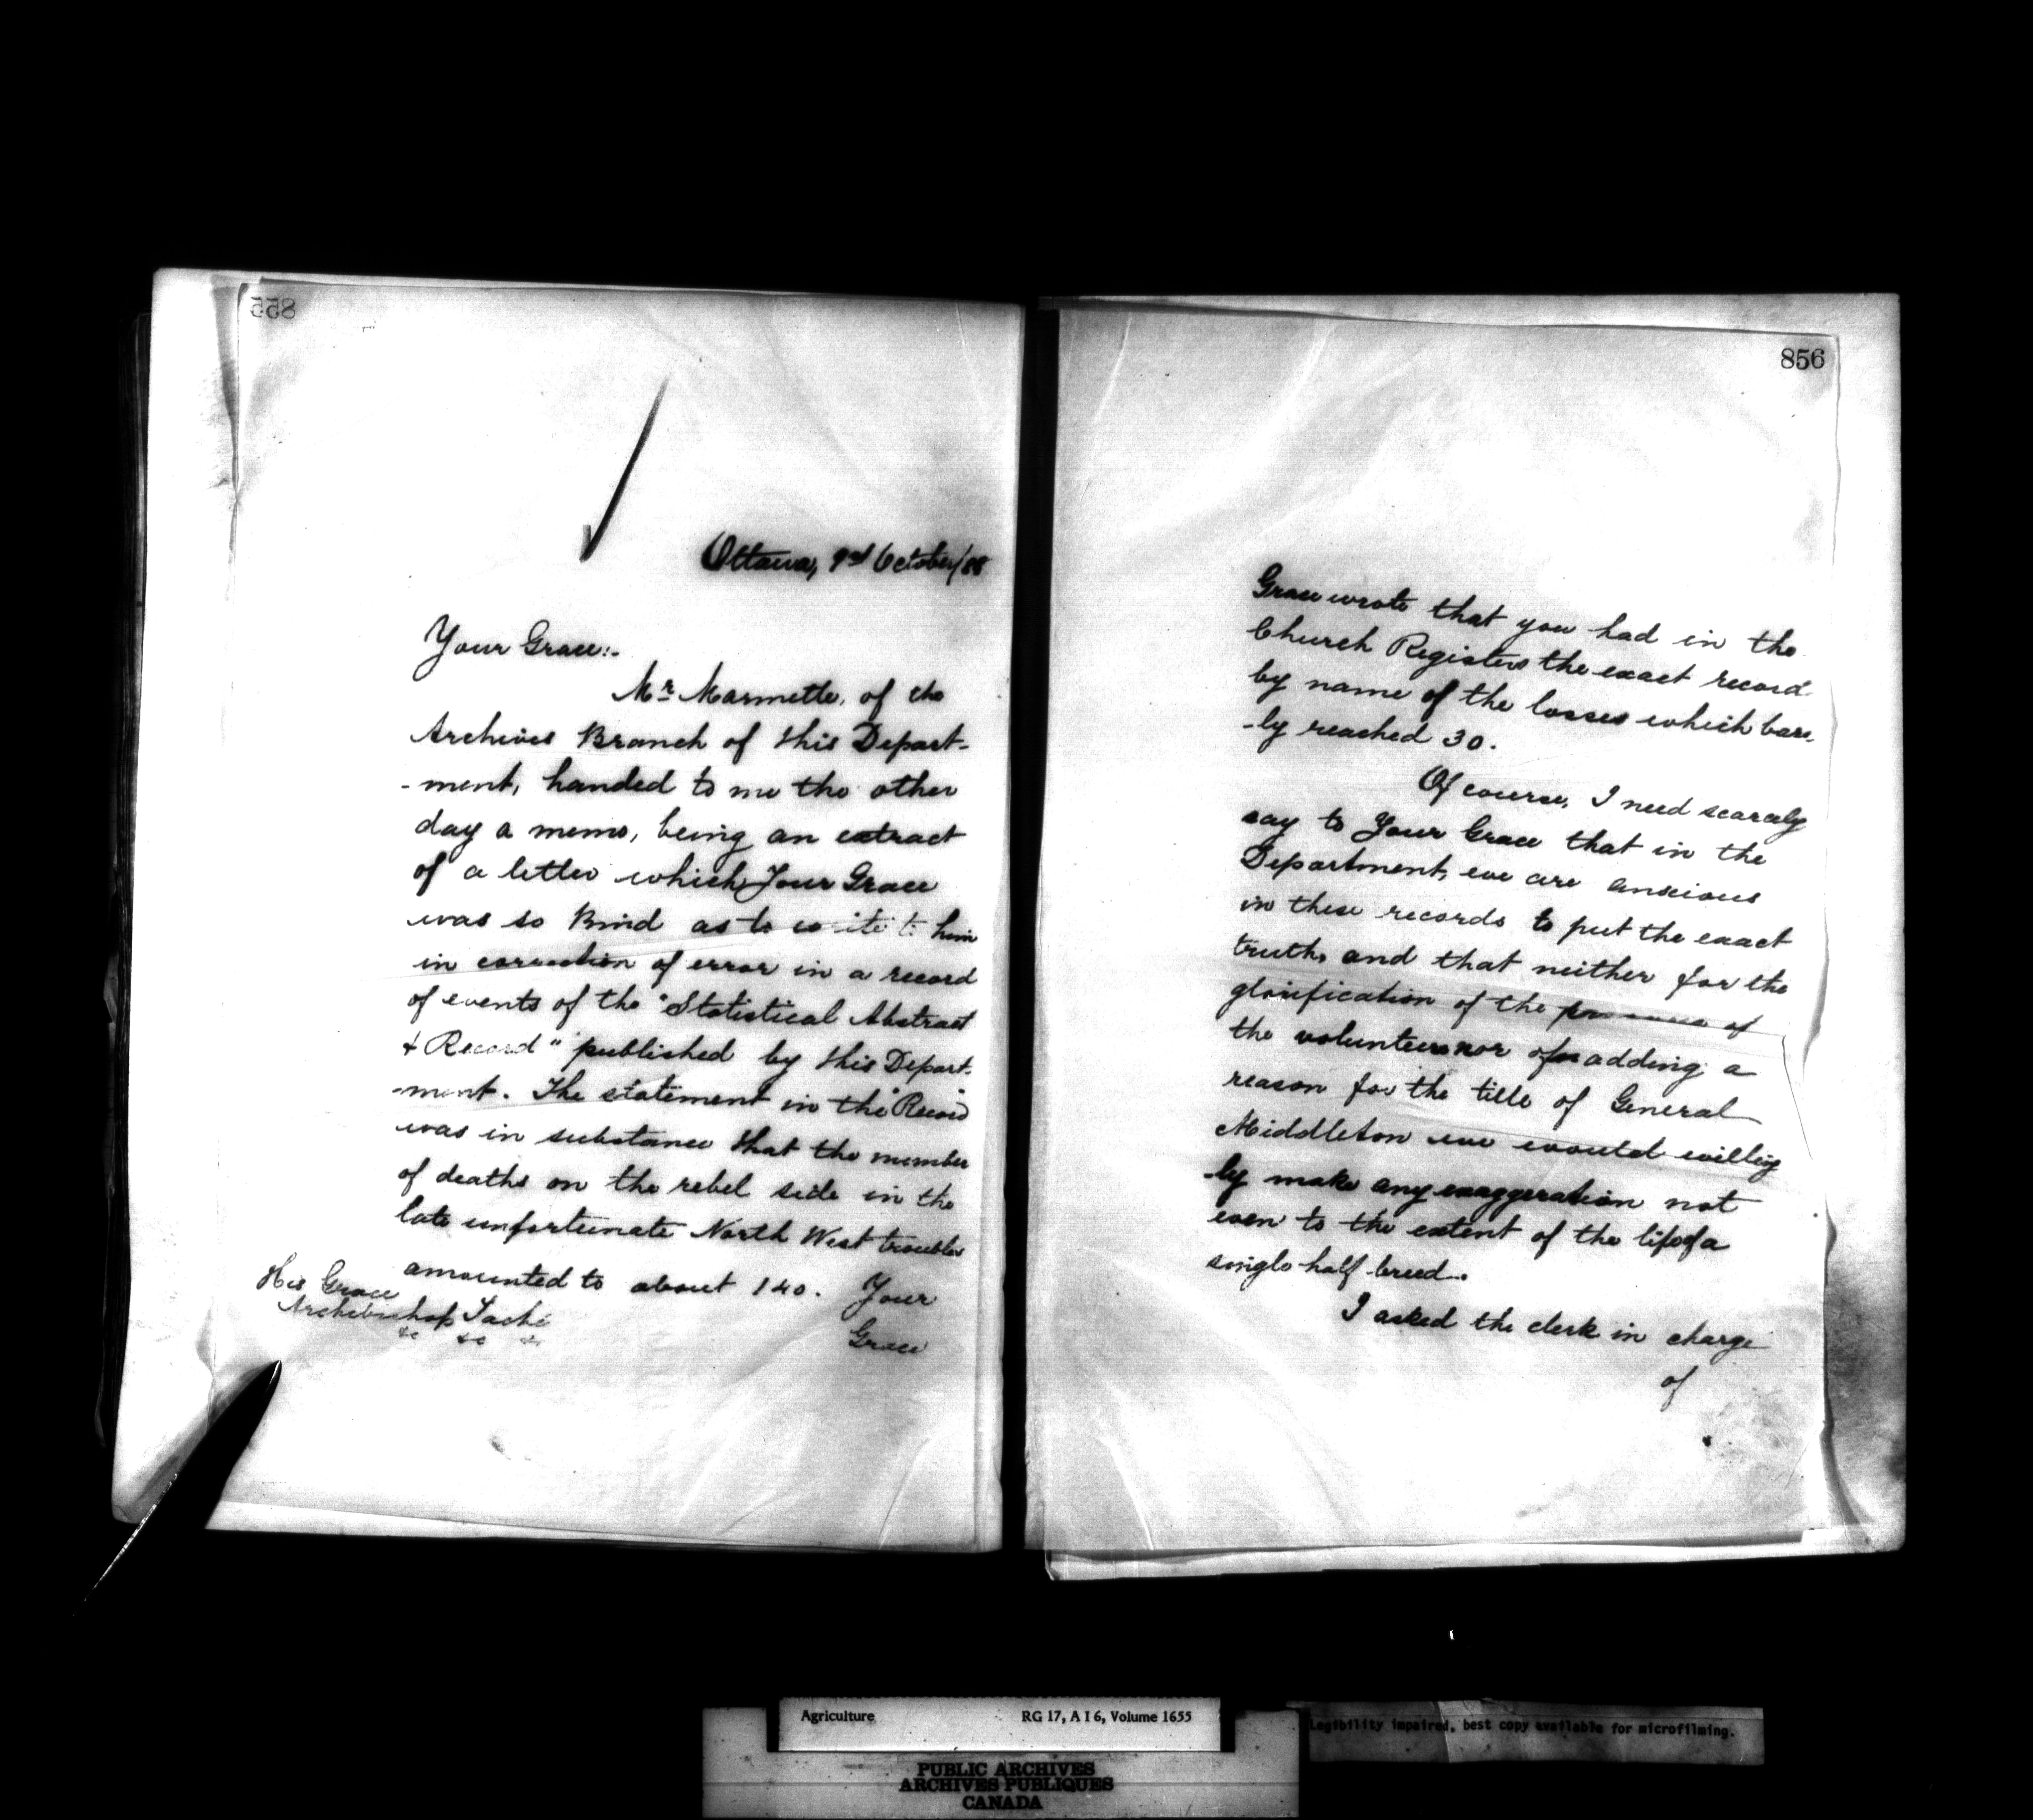 855
Ottawa, 9th October/88
Your Grace:-
Mr Marmette, of the
Archives Branch of this Depart-
-ment, handed to me the other
day a memo, being an extract
of a letter which Your Grace
was so kind as to write to him
in correction of error in a record
of events of the "Statistical Abstract
& Record" published by this Depart-
-ment. The statement in the "Record"
was in substance that the number
of deaths on the rebel side in the
late unfortunate North West troubles
amounted to about 140. Your
Grace
His Grace
Archbishop Taché
&c &c &c
856
Grace wrote that you had in the
Church Registers the exact record
by name of the losses which bare-
-ly reached 30.
Of course, I need scarcely
say to Your Grace that in the
Department, we are anxious
in these records to put the exact
truth, and that neither for the
glorification of the of
the volunteers nor for adding a
reason for the title of General
Middleton we would willing
-ly make any exaggeration not
even to the extent of the life of a
single half breed.
I asked the clerk in charge
of
Agriculture RG 17, A I 6, Volume 1655
Legibility impaired, best copy available for microfilming.
PUBLIC ARCHIVES
ARCHIVES PUBLIQUES
CANADA